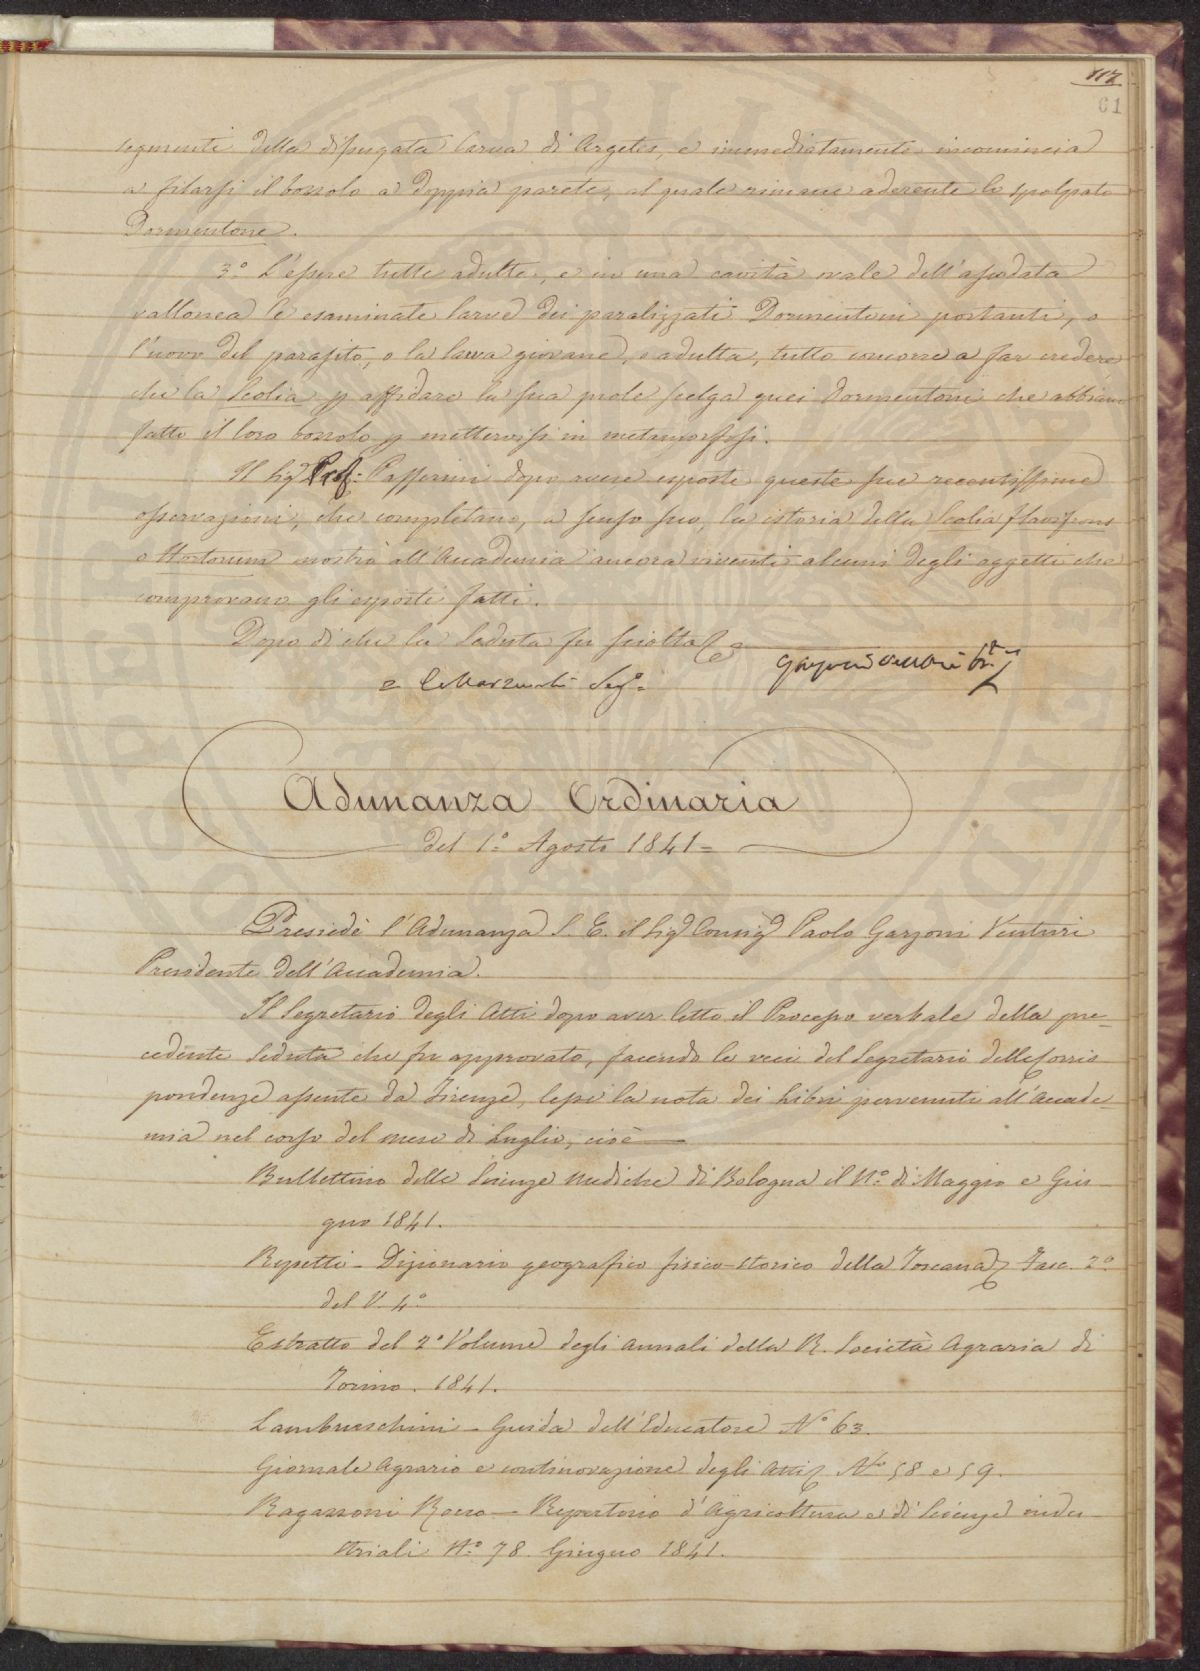 117
61
segmenti della disseccata larva di Orgetes, e immediatamente incomincia
a filarsi il bozzolo a doppia parete, al quale rimane aderente lo spolpato
Dormentone.
3.° L'essere tutte adulte, e in una cavità ovale dell'assodata
vallonea le esaminate larve dei paralizzati Dormentoni portanti, o
l'uovo del parasito, o la larva giovane, o adulta, tutto concorre a far credere,
che la Scolia p affidare la sua prole scelga quei Dormentoni che abbiano
fatto il loro bozzolo p mettervisi in metamorfosi.
Il Sig Prof: Passerini dopo avere esposte queste sue recentissime
osservazioni, che completano, a senso suo, la istoria della Scolia flavifrons
o Hortorum mostrò all'Accademia ancora viventi alcuni degli oggetti che
comprovano gli esposti fatti.
Dopo di che la Seduta fu sciolta
Seg.°
Adunanza Ordinaria
del 1.° Agosto 1841 =
Presiedè l'Adunanza S. E. il Sig Consig Paolo Garzoni Venturi
Presidente dell'Accademia.
Il Segretario degli Atti dopo aver letto il Processo verbale della pre=
cedente Seduta che fu approvato, facendo le veci del Segretario delle Corris
pondenze assente da Firenze, lesse la nota dei Libri pervenuti all'Accade=
mia nel corso del mese di Luglio, cioè
Bullettino delle Scienze Mediche di Bologna il N.° di Maggio e Giu
gno 1841.
Repetti - Dizionario geografico fisico-storico della Toscana, Fasc. 2.°
del V. 4.°
Estratto del 2° Volume degli Annali della R. Società Agraria di
Torino. 1841.
Lambruschini - Guida dell'Educatore N° 63.
Giornale Agrario e continovazione degli Atti N.° 58 e 59.
Ragazzoni Rocco - Repertorio d'Agricoltura e di Scienze indu
striali N.° 78. Giugno 1841.